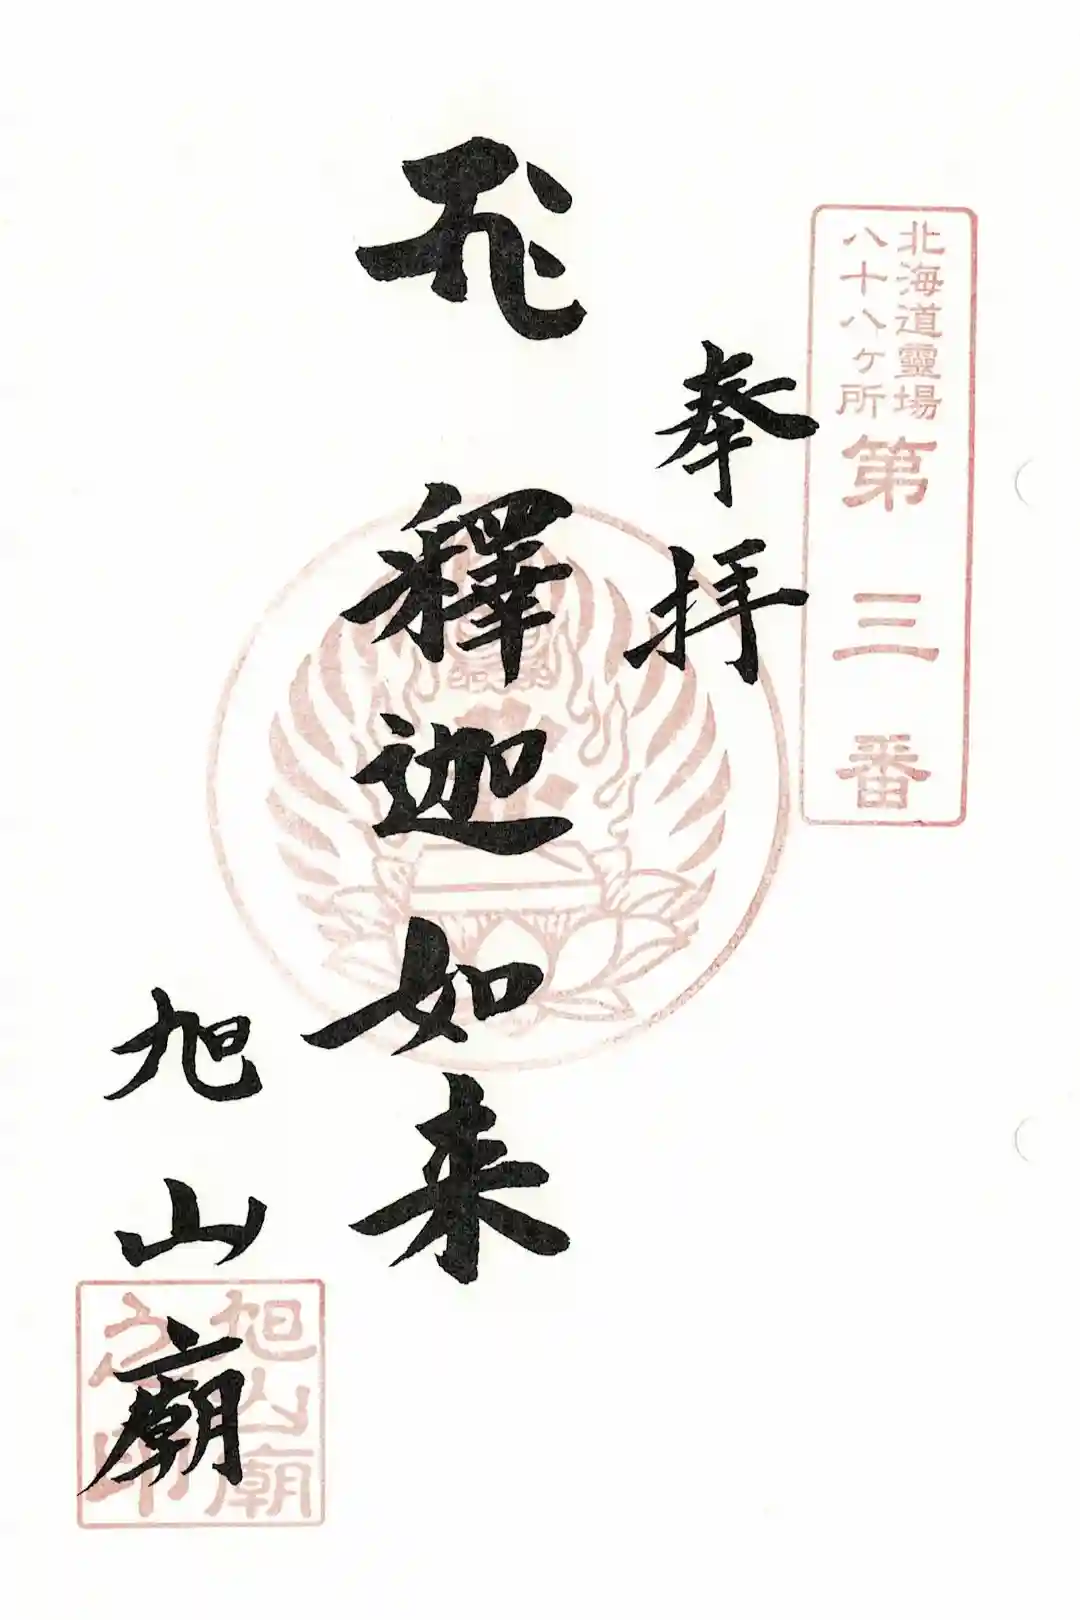 北海道靈場
八十八ヶ所
第三番
奉拝
釋迦如来
旭山廟
旭山廟
之印